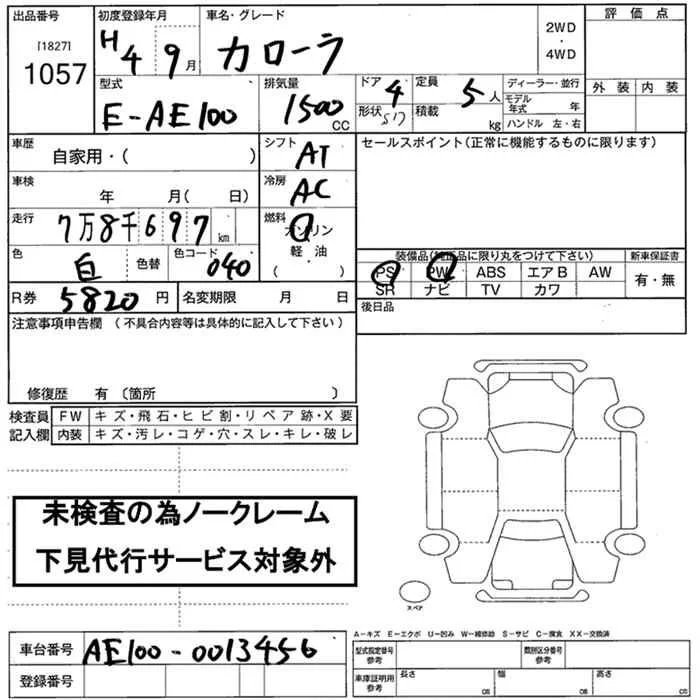 出品番号 初度登録年月 車名・グレード 評価点
[1827] 1057 H4 9月 カローラ 2WD・4WD
外装 内装
型式 E-AE100 排気量 1500 CC ドア 4 定員 5人 ディーラー・並行
形状 S17 積載 kg モデル年式 年
ハンドル 左・右
車歴 自家用・( ) シフト AT セールスポイント(正常に機能するものに限ります)
車検 年 月( 日) 冷房 AC
走行 7万8千697km 燃料 ガソリン
軽油
( )
色 白 色替 色コード 040
装備品(純正品に限り丸をつけて下さい) 新車保証書
PS PW ABS エアB AW 有・無
SR ナビ TV カワ
R券 5820円 名変期限 月 日 後日品
注意事項申告欄 (不具合内容等は具体的に記入して下さい)
修復歴 有 〔箇所 〕
検査員 FW キズ・飛石・ヒビ割・リペア跡・X要
記入欄 内装 キズ・汚レ・コゲ・穴・スレ・キレ・破レ
未検査の為ノークレーム
下見代行サービス対象外
スペア
A-キズ E-エクボ U-凹み W-補修跡 S-サビ C-腐食 XX-交換済
車台番号 AE100-0013456 型式指定番号 参考 類別区分番号 参考
登録番号 車庫証明用 参考 長さ cm 幅 cm 高さ cm